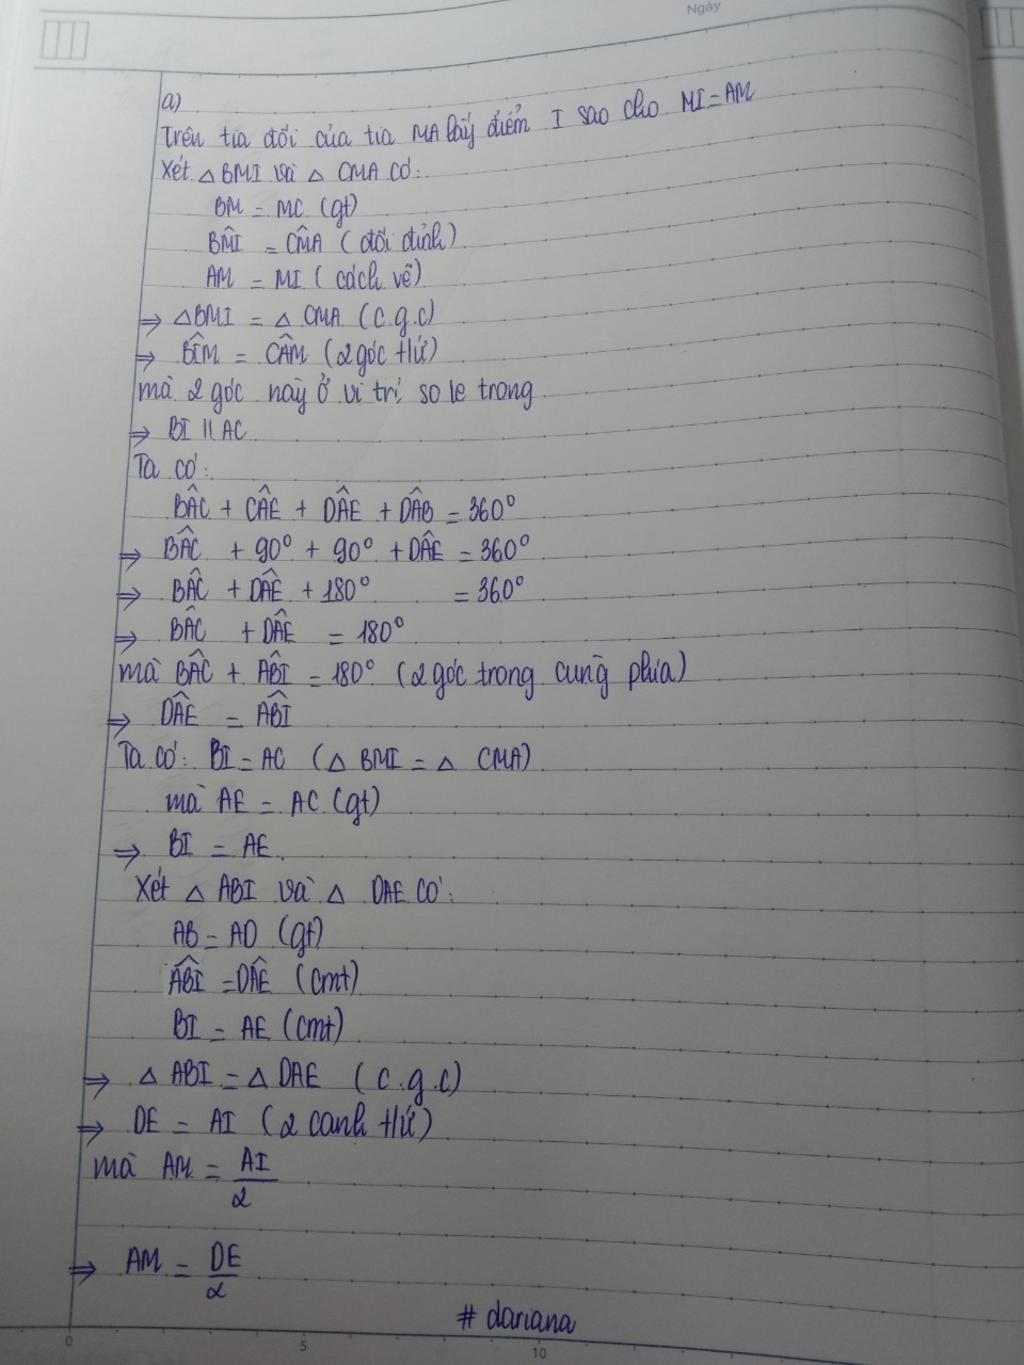 Ngày
a)
Trên tia đối của tia MA lấy điểm I sao cho MI = AM
Xét △BMI và △ CMA có:
BM = MC (gt)
BM̂I = CM̂A (đối đỉnh)
AM = MI (cách vẽ)
⇒ △BMI = △ CMA (c.g.c)
⇒ BÎM = CÂM (2 góc tứ)
mà 2 góc này ở vị trí so le trong
⇒ BI || AC
Ta có:
BÂC + CÂE + DÂE + DÂB = 360°
⇒ BÂC + 90° + 90° + DÂE = 360°
⇒ BÂC + DÂE + 180° = 360°
⇒ BÂC + DÂE = 180°
mà BÂC + AB̂I = 180° (2 góc trong cùng phía)
⇒ DÂE = AB̂I
Ta có: BI = AC (△ BMI = △ CMA)
mà AE = AC (gt)
⇒ BI = AE.
Xét △ ABI và △ DAE có:
AB = AD (gt)
AB̂I = DÂE (cmt)
BI = AE (cmt)
⇒ △ ABI = △ DAE (c.g.c)
⇒ DE = AI (2 cạnh tứ)
mà AM = AI/2
⇒ AM = DE/2
# dariana
0 5 10